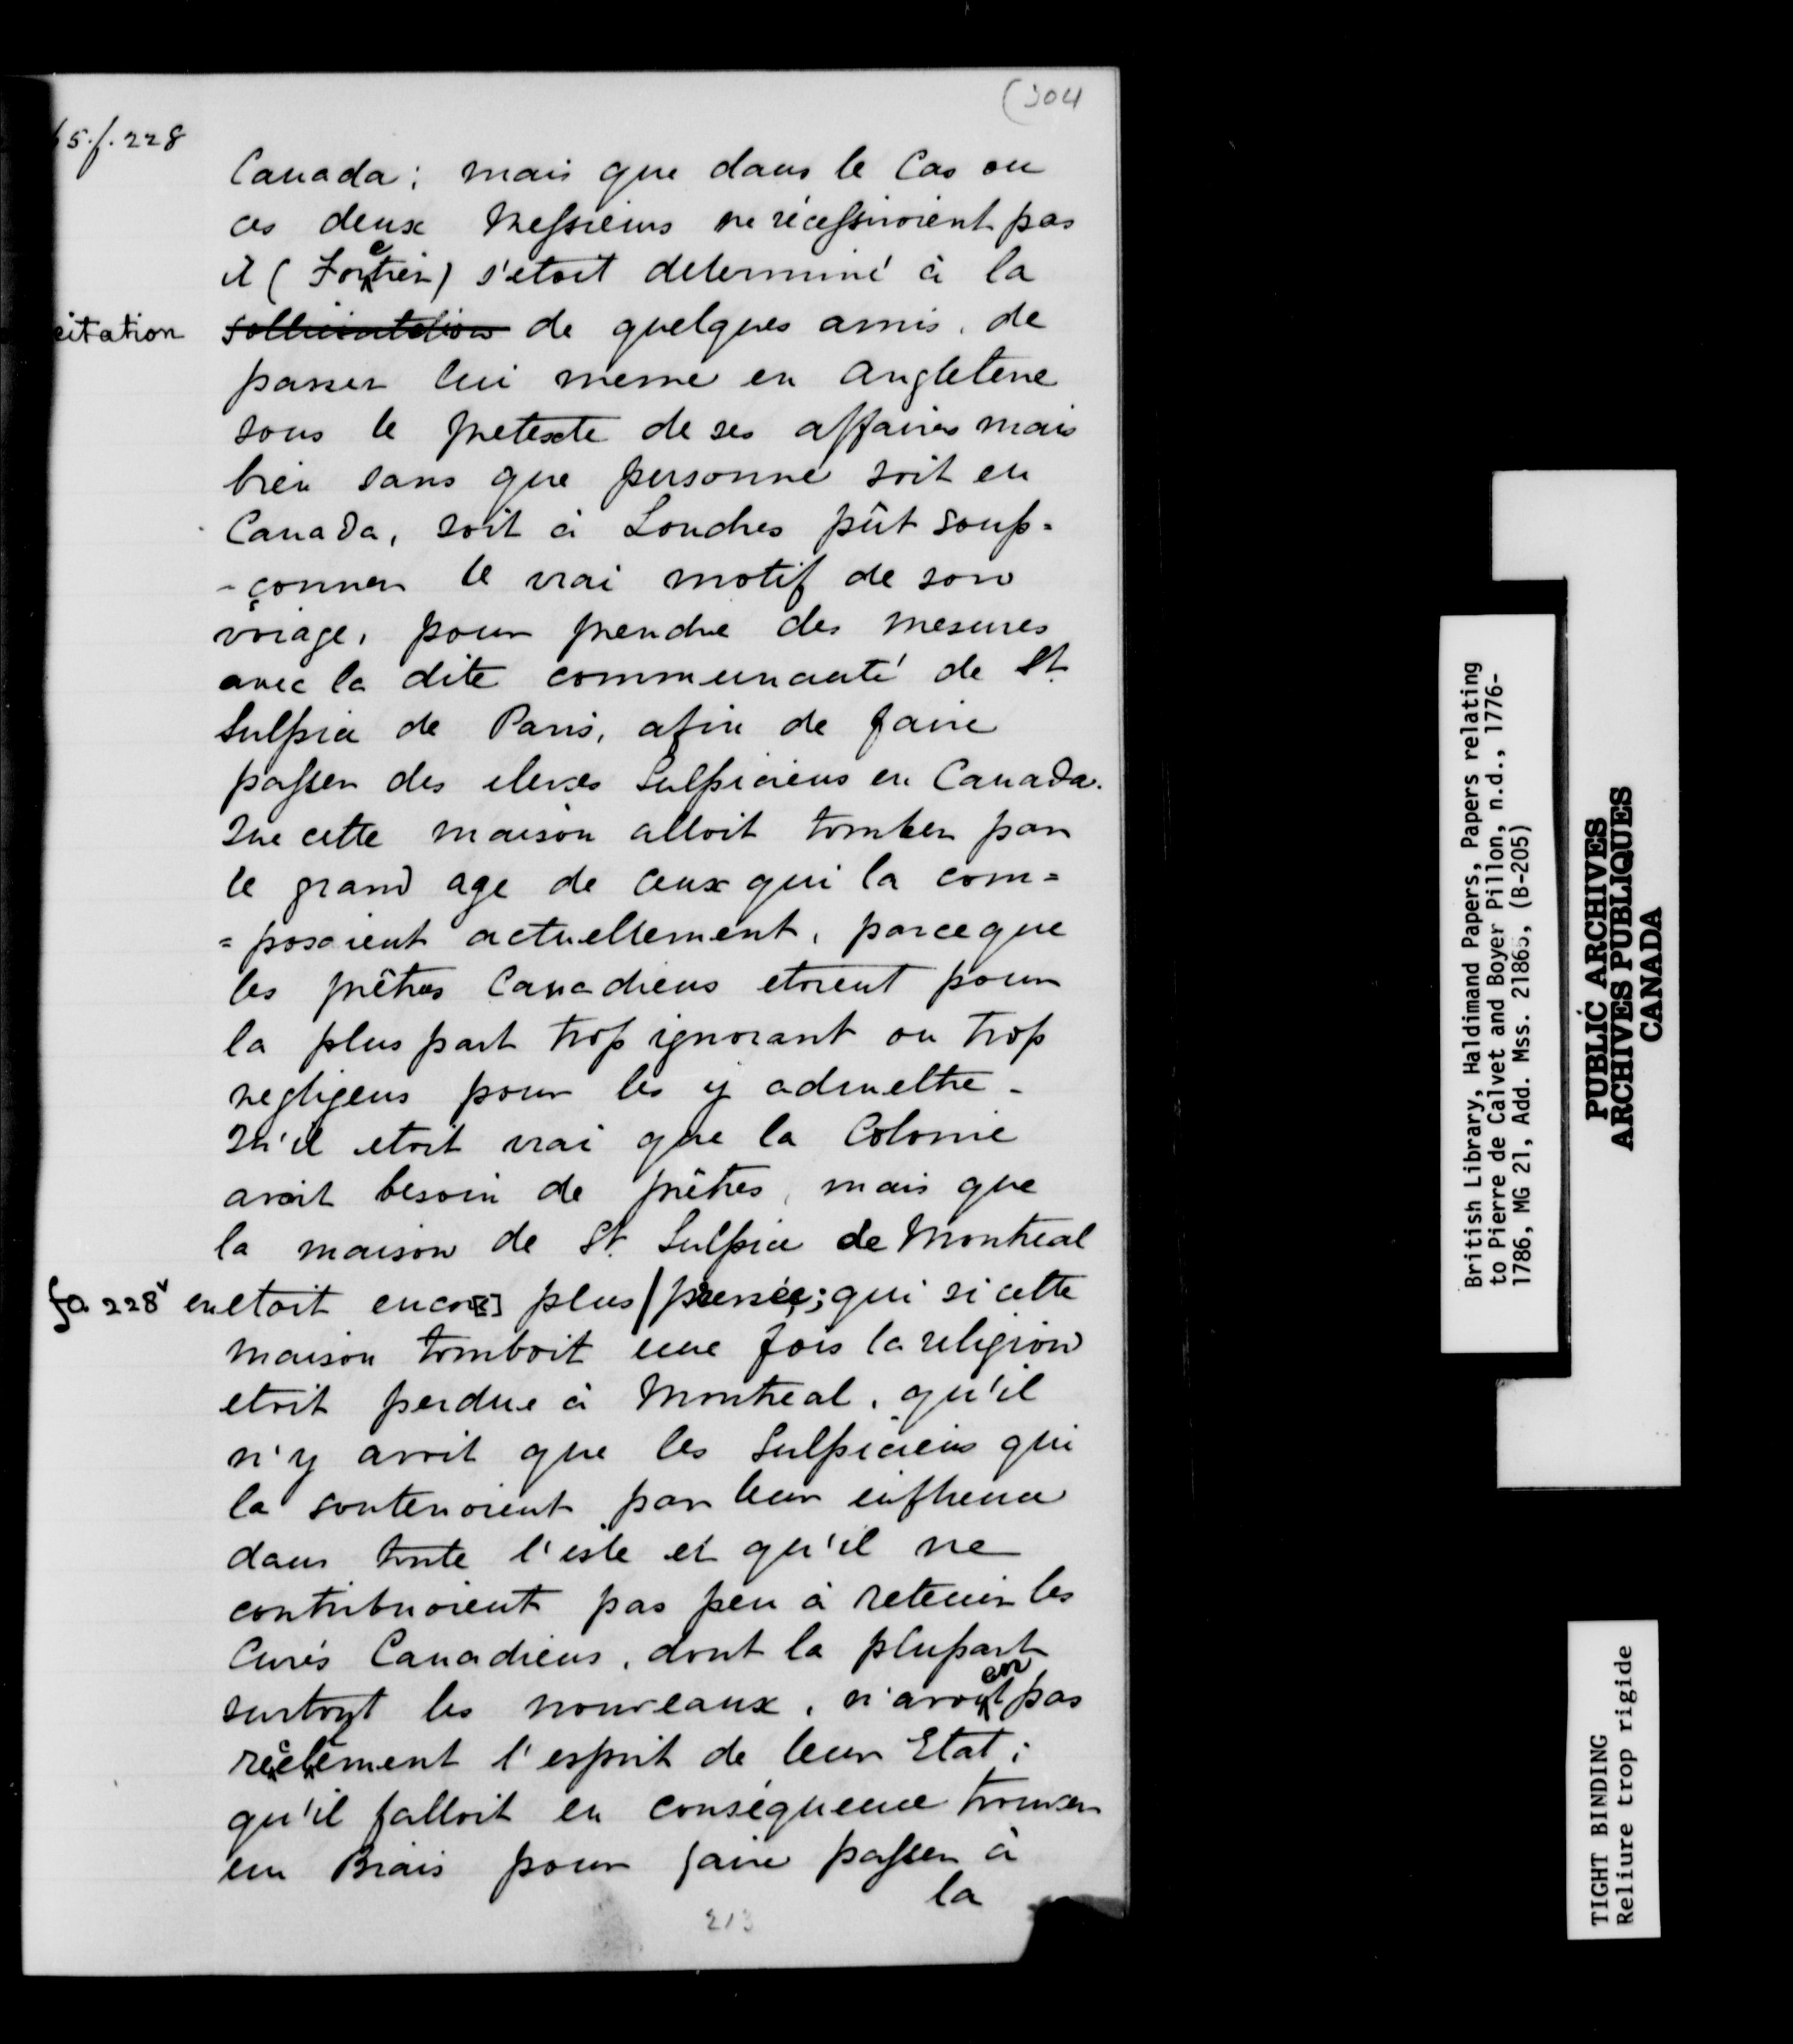 (304
65.f.228
Canada; mais que dans le Cas ou
ces deux Messieurs ne réussiroient pas
il (Fortier) s'etoit determiné à la
citation sollicitation de quelques amis, de
passer lui meme en Angleterre
sous le pretexte de ses affaires mais
bien sans que personne soit en
Canada, soit à Londres pût soup-
-çonner le vrai motif de son
voiage, pour prendre des mesures
avec la dite communauté de St.
Sulpice de Paris, afin de faire
passer des eleves Sulpiciens en Canada.
Que cette maison alloit tomber par
le grand age de ceux qui la com=
=posoient actuellement, parceque
les prêtres Canadiens etoient pour
la plus part trop ignorant ou trop
negligens pour les y admettre -
Qu'il etoit vrai que la Colonie
avoit besoin de prêtres, mais que
la maison de St. Sulpice de Montreal
fo. 228v en etoit encor[e] plus / pressée; qui si cette
maison tomboit une fois la religion
etoit perdue à Montreal, qu'il
n'y avoit que les Sulpiciens qui
la soutenoient par leur influence
dans toute l'isle et qu'il ne
contribuoient pas peu à retenir les
Curés Canadiens, dont la plupart
surtout les nouveaux, n'avoient pas
réelement l'esprit de leur Etat;
qu'il falloit en conséquence trouver
un Biais pour faire passer à
la
213
British Library, Haldimand Papers, Papers relating
to Pierre de Calvet and Boyer Pillon, n.d., 1776-
1786, MG 21, Add. Mss. 21865, (B-205)
PUBLIC ARCHIVES
ARCHIVES PUBLIQUES
CANADA
TIGHT BINDING
Reliure trop rigide